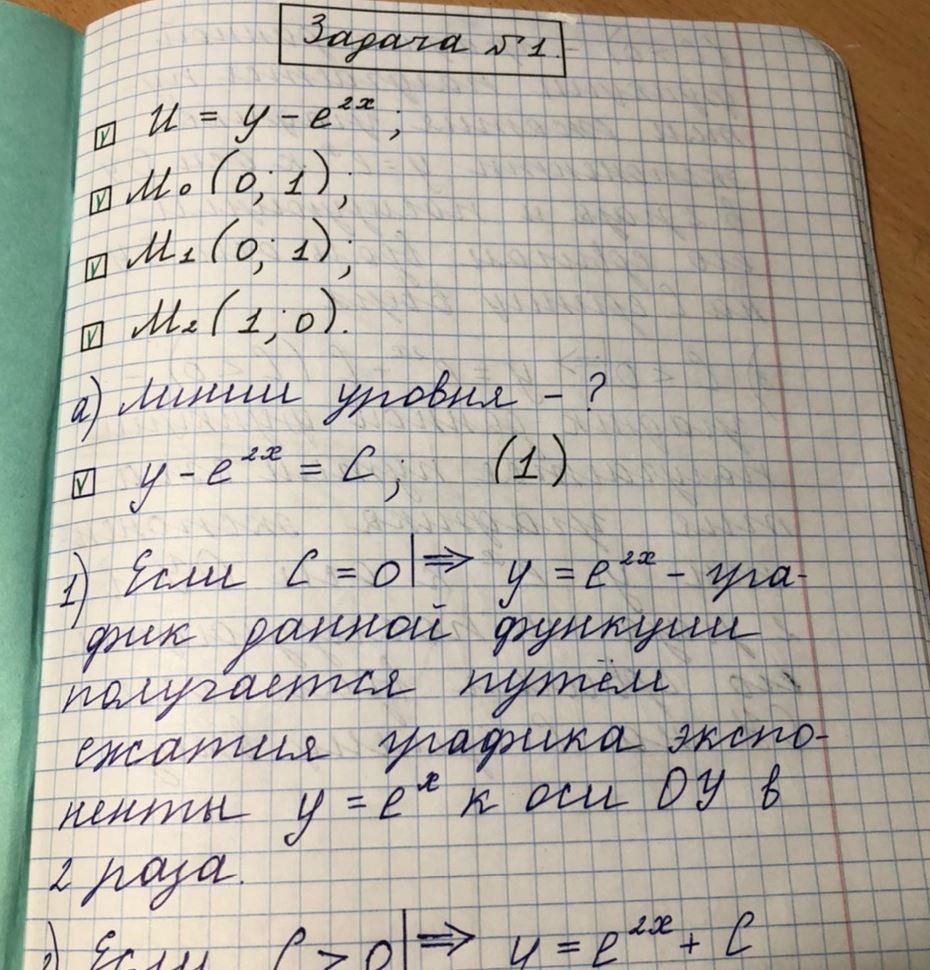 Задача №1.
U = y - e^{2x};
M₀ (0; 1);
M₁ (0; 1);
M₂ (1; 0).
а) Линии уровня - ?
y - e^{2x} = C; (1)
1) Если C = 0 | ⇒ y = e^{2x} - гра-
фик данной функции
получается путём
сжатия графика экспо-
ненты y = e^x к оси ОУ в
2 раза.
Если C > 0 | ⇒ y = e^{2x} + C